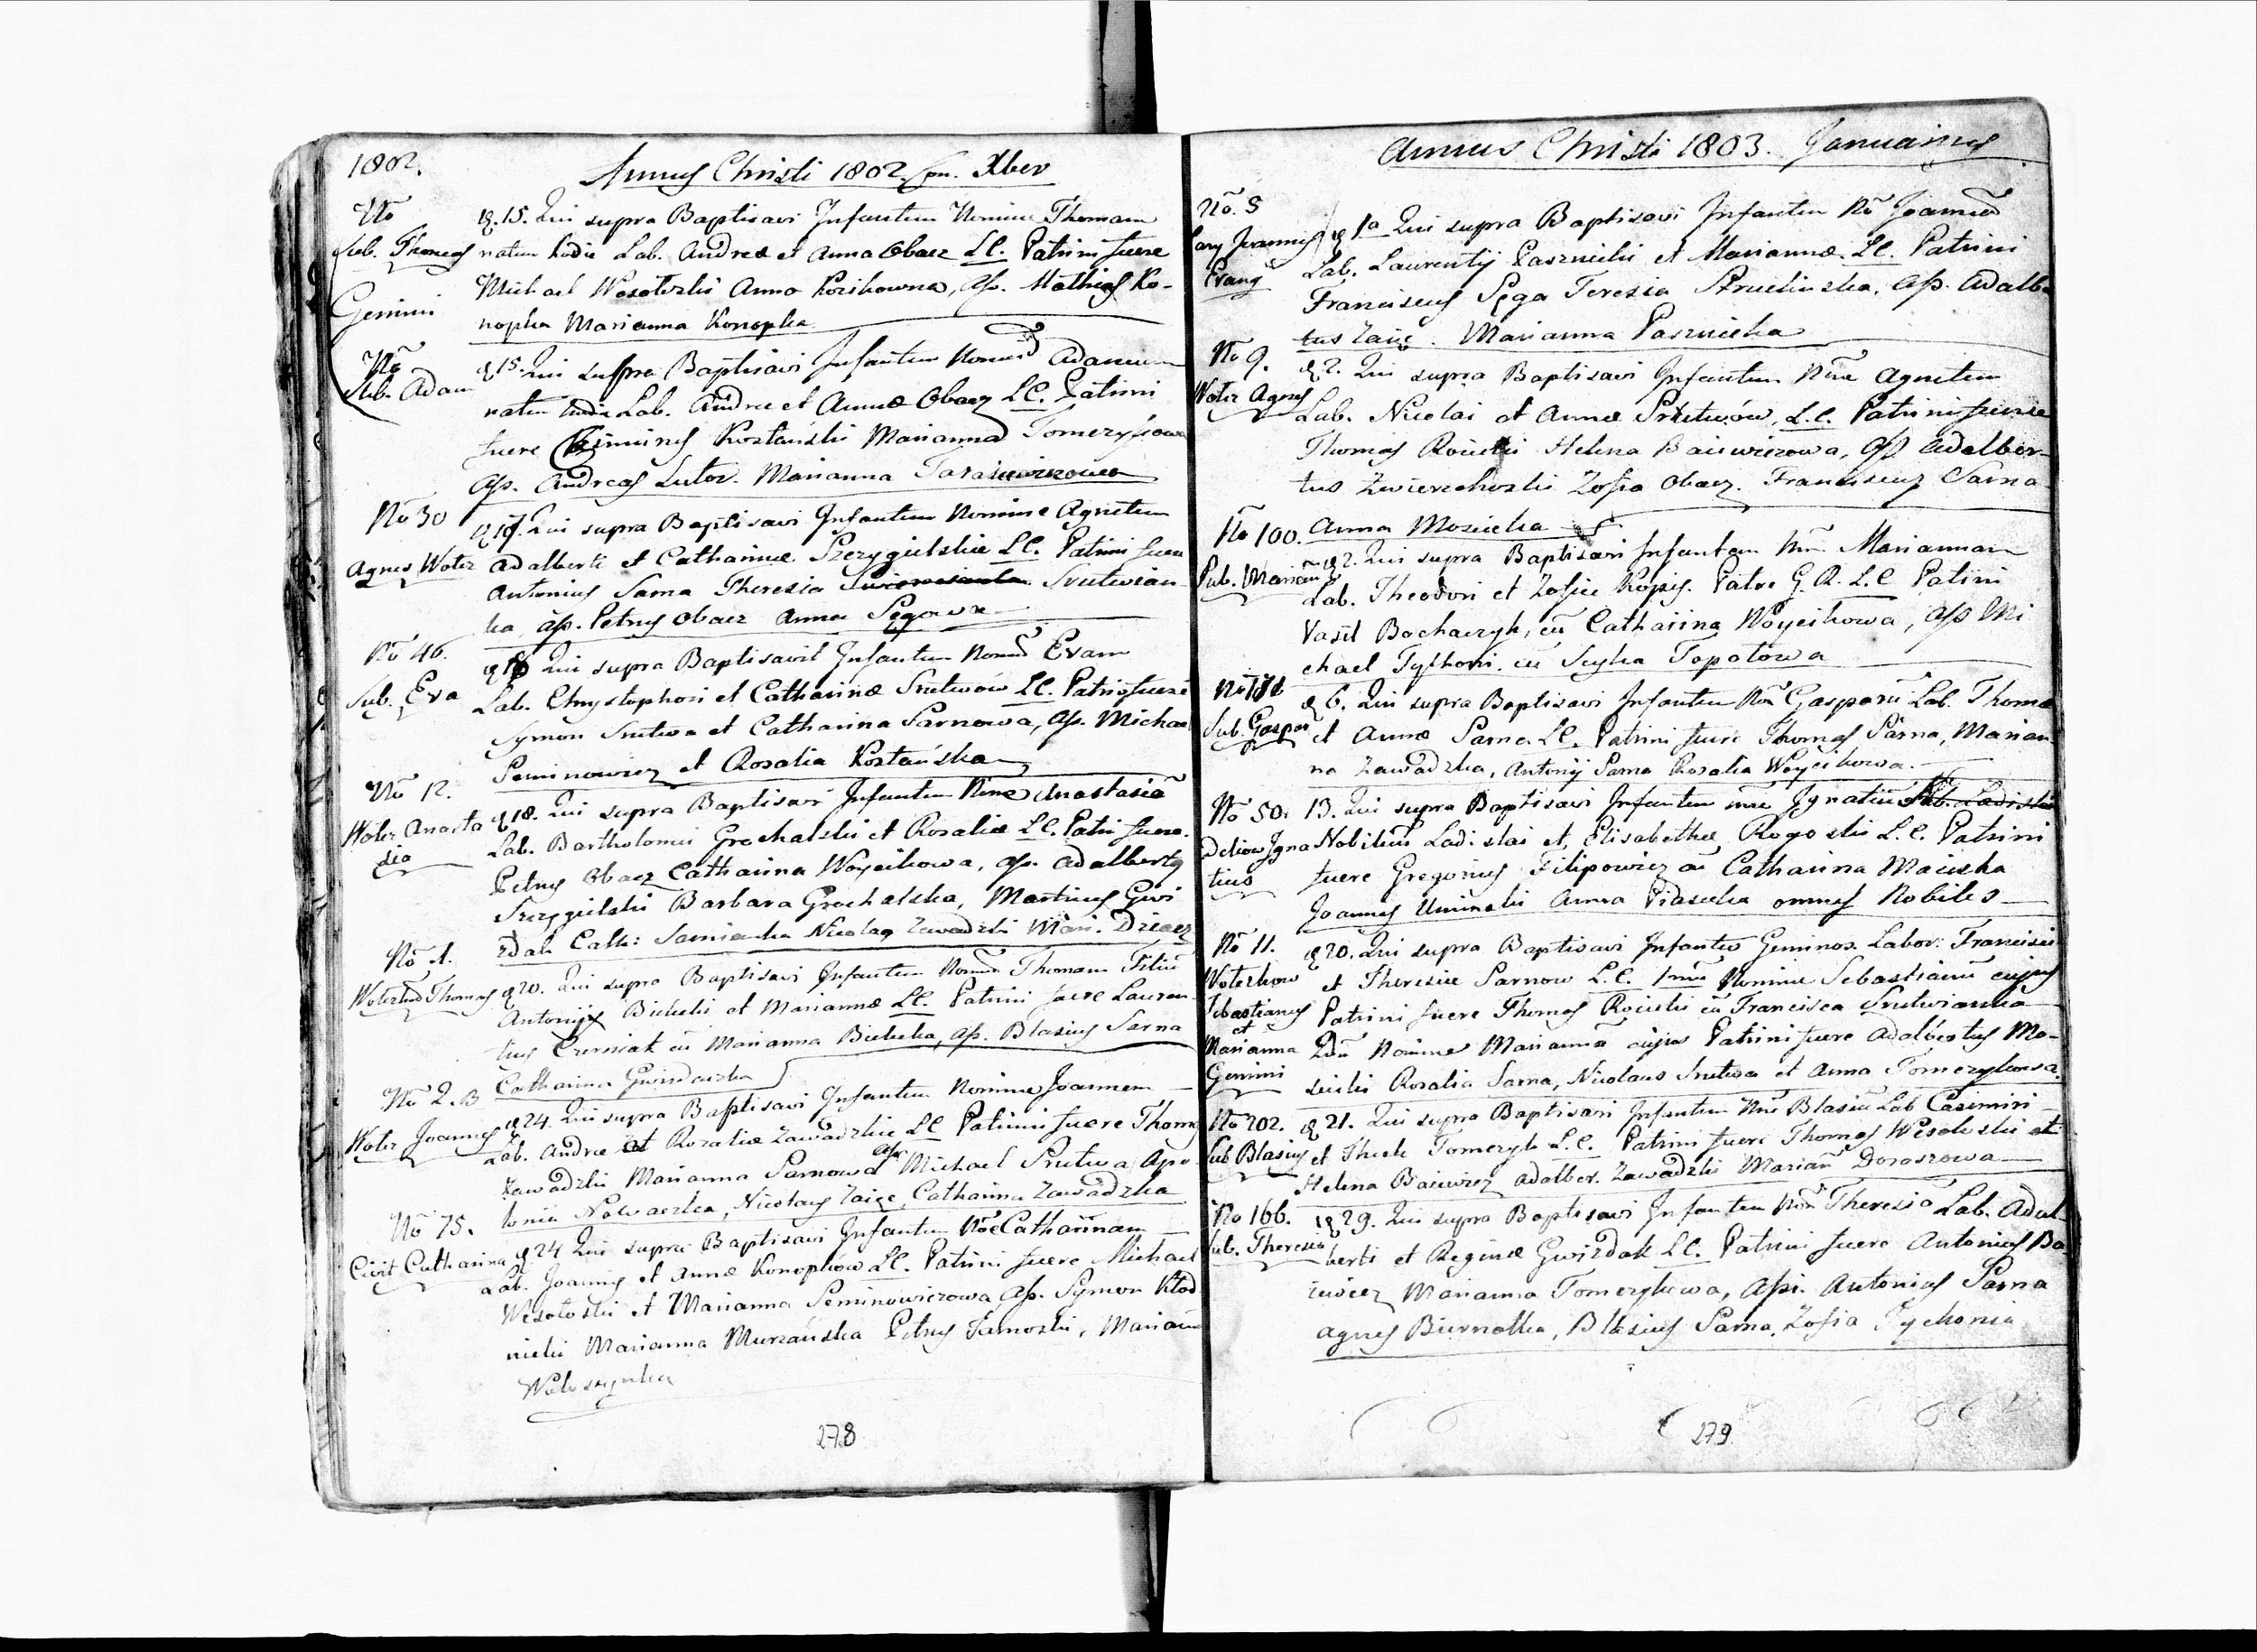 1802.
Annus Christi 1802. Xber
No
Sub. Thomas
Gemini
15. Qui supra Baptisavi Infantem Nomine Thomam
natum hodie Lab. Andreæ et Anna Obacz LC. Patrini fuere
Michael Wesołoski Anna Kozikowna, aſs. Mathias Ko-
nopka Marianna Konopka
No
Sub. Adam
15. Qui supra Baptisavi Infantem Adamum
natum hodie Lab. Andreæ et Annæ Obacz LC. Patrini
fuere Marianna
aſs. Andreas Marianna
No 30
Agnes Woler
Qui supra Baptisavi Infantem Nomine Agnetem
Adalberti et Catharinæ Szczygielskie LC. Patrini fuere
Antonius Sarna Theresia Srutwian-
ka, aſs. Petrus Obacz Anna Segowa
No 46.
Sub. Eva
Qui supra Baptisavit Infantem Evam
Lab. Chrystophori et Catharinæ Srutwów LC.
Symon Srutwa et Catharina Sarnowa, aſs. Michael
Seminowicz et Rosalia
No 12.
Woler Anasta
sia
18. Qui supra Baptisavi Infantem Anastasiã
Lab. Bartholomei Grochalski et Rosaliæ LC. Patri fuere.
Petrus Obacz Catharina Woycikowa, aſs. Adalbertus
Szczygielski Barbara Grochalska, Martinus Gwi
zdak Cath: Nicolaus Zawadzki Mari.
No 1.
Thomas
20. Qui supra Baptisavi Infantem Thomam Filiũ
Antonij Bielecki et Mariannæ LC. Patrini fuere Lauren-
tius cũ Marianna Bielecka, aſs. Blasius Sarna
Catharina
No 2. B
Woler Joannes
24. Qui supra Baptisavi Infantem Nomine Joannem
Lab. Andreæ et Rozaliæ Zawadzkie LC Patrini fuere Thomas
Zawadzki Marianna Sarnowa aſs Michael Srutwa Apo
lonia Nowaczka, Nicolaus Zaięc, Catharina Zawadzka
No 75.
Civit Catharina
24 Qui supra Baptisavi Infantem Catharinam
Lab. Joannis et Annæ Konopków LC. Patrini fuere Michael
Wesołoski et Marianna Seminowiczowa aſs. Symon Kłod
nicki Marianna Murzańska Petrus Marianna
278
Annus Christi 1803. Januarius
No. 5
Joannes
Evang
1a Qui supra Baptisavi Infantem No Joannem
Lab. Laurentij Pasznicki et Mariannæ. LC. Patrini
Franciscus Sęga Teresia aſs. Adalber
tus Zaięc. Marianna Pasznicka
No 9.
Woler Agnes
2. Qui supra Baptisavi Infantem Agnetem
Lab. Nicolai et Annæ Srutwów, L.C. Patrini fuere
Thomas Helena Baiewiczowa, aſs Adalber-
tus Zwierzchoski Zofia Obacz. Franciscus Sarna
Anna Mosiecka
No 100.
Sub. Mariana
2. Qui supra Baptisavi Infantem Mariannam
Lab. Theodori et Zofiæ Patre G. R. L.C Patrini
Vasil cũ Catharina Woycikowa, aſs Mi
chael cũ Topotowa
Sub. Gaspar
6. Qui supra Baptisavi Infantem Gasparũ Lab. Thomæ
et Annæ Sarna LC. Patrini fuere Thomas Sarna, Marian-
na Zawadzka, Antonij Sarna Rosalia Woycikowa.
No 50.
Igna
tius
13. Qui supra Baptisavi Infantem Ignatiũ
Nobiliũ Ladislai et Elisabethæ Rogoskie L.C. Patrini
fuere Gregorius Filipowicz cũ Catharina
Joannes Uminski Anna Piasecka omnes Nobiles
No 11.
Sebastianus
et
Marianna
Gemini
20. Qui supra Baptisavi Infantes Geminos. Labor: Francisci
et Theresiæ Sarnow L.C. Nomine Sebastianũ cujus
Patrini fuere Thomas cũ Francisca Srutwianka
Nomine Mariannã cujus Patrini fuere Adalbertus Mo-
siecki Rosalia Sarna, Nicolaus Srutwa et Anna Tomczykowa.
No 202.
Sub Blasius
21. Qui supra Baptisavi Infantem Blasiũ Lab Casimiri
et Theclæ Tomczyk L.C. Patrini fuere Thomas Wesołoski et
Helena Baiewicz Adalber. Zawadzki Doroszowa
No 166.
Sub. Theresia
29. Qui supra Baptisavi Infantem Theresiã Lab. Adal-
berti et Reginæ Gwizdak LC. Patrini fuere Antonius Ba-
iewicz Marianna Tomczykowa, Antonius Sarna
Agnes Biernatka, Blasius Sarna, Zofia Tychonia
279